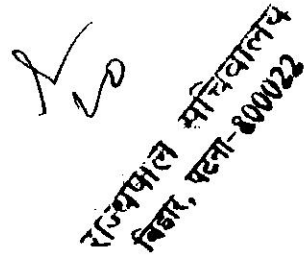 राज्यपाल सचिवालय
बिहार, पटना-800022